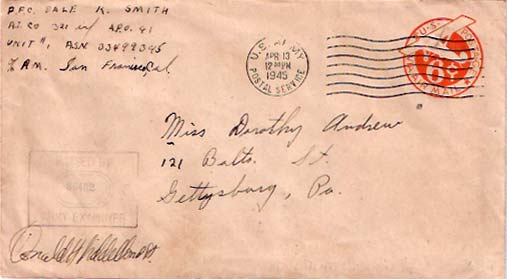 P.F.C. DALE K. SMITH
AT. CO 321 inf A.P.O. 81
UNIT #1, ASN 33499345
% P.M. San Francisco, Cal
U.S. ARMY
APR 13
12 PM
1945
POSTAL SERVICE
U.S. POSTAGE
6¢
VIA AIR MAIL
Miss Dorothy Andrew
121 Balto. St.
Gettysburg, Pa.
PASSED BY
ARMY EXAMINER